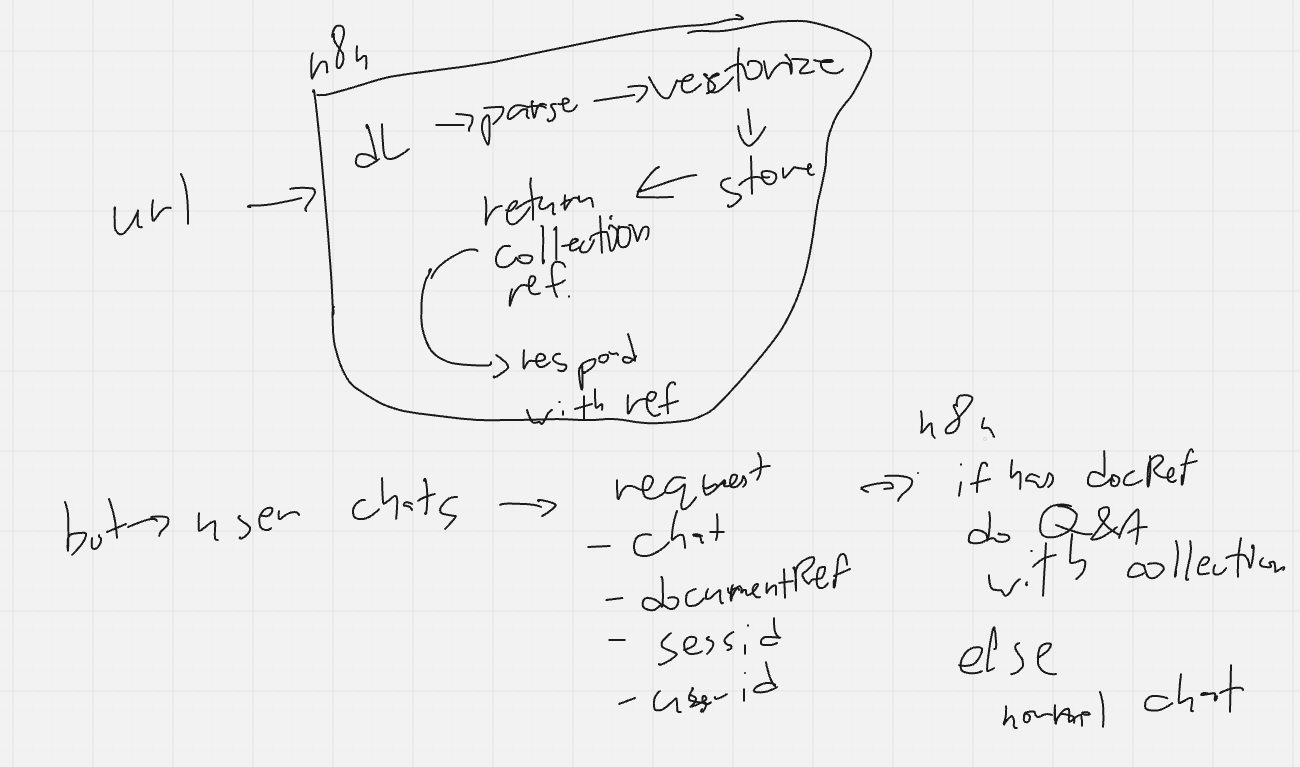 n8n
url → dL → parse → vectorize
↓
store
← return
collection
ref.
→ respond
with ref
bot → user chats →
request
- chat
- documentRef
- sessid
- userid
→ n8n
if has docRef
do Q&A
with collection
else
normal chat